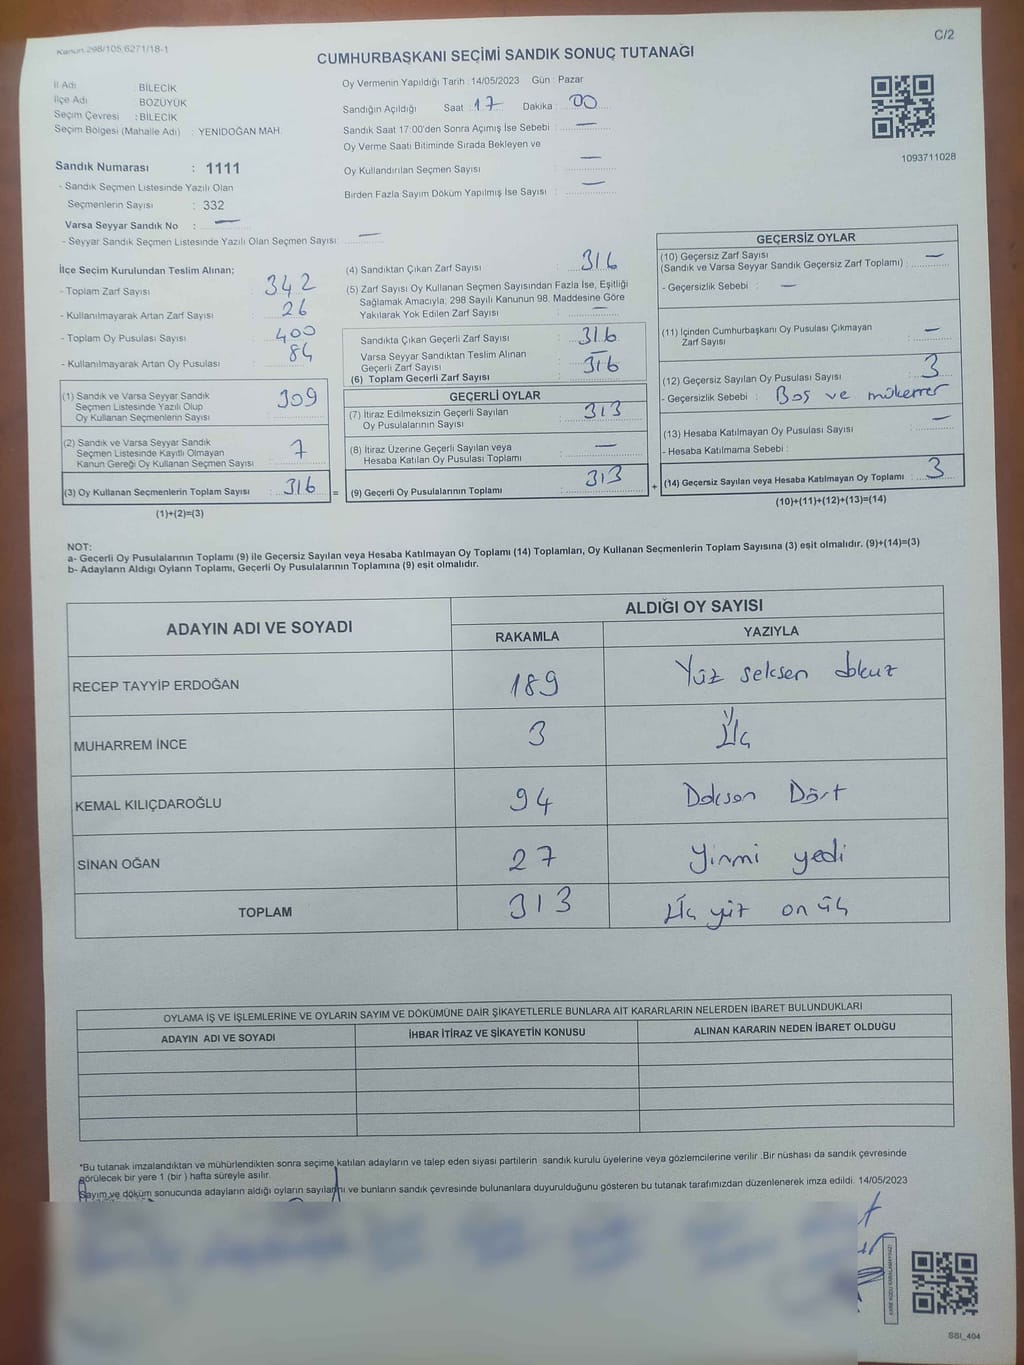 Kanun:298/105,6271/18-1
C/2
CUMHURBAŞKANI SEÇİMİ SANDIK SONUÇ TUTANAĞI
İl Adı : BİLECİK
İlçe Adı : BOZÜYÜK
Seçim Çevresi : BİLECİK
Seçim Bölgesi (Mahalle Adı) : YENİDOĞAN MAH.
Sandık Numarası : 1111
- Sandık Seçmen Listesinde Yazılı Olan
Seçmenlerin Sayısı : 332
Varsa Seyyar Sandık No : —
- Seyyar Sandık Seçmen Listesinde Yazılı Olan Seçmen Sayısı: —
Oy Vermenin Yapıldığı Tarih : 14/05/2023 Gün : Pazar
Sandığın Açıldığı Saat : 17 Dakika : 00
Sandık Saat 17:00'den Sonra Açımış İse Sebebi : —
Oy Verme Saati Bitiminde Sırada Bekleyen ve
Oy Kullandırılan Seçmen Sayısı : —
Birden Fazla Sayım Döküm Yapılmış İse Sayısı : —
1093711028
İlçe Seçim Kurulundan Teslim Alınan;
- Toplam Zarf Sayısı : 342
- Kullanılmayarak Artan Zarf Sayısı : 26
- Toplam Oy Pusulası Sayısı : 400
- Kullanılmayarak Artan Oy Pusulası : 84
(1) Sandık ve Varsa Seyyar Sandık
Seçmen Listesinde Yazılı Olup
Oy Kullanan Seçmenlerin Sayısı : 309
(2) Sandık ve Varsa Seyyar Sandık
Seçmen Listesinde Kayıtlı Olmayan
Kanun Gereği Oy Kullanan Seçmen Sayısı : 7
(3) Oy Kullanan Seçmenlerin Toplam Sayısı : 316
(1)+(2)=(3)
(4) Sandıktan Çıkan Zarf Sayısı : 316
(5) Zarf Sayısı Oy Kullanan Seçmen Sayısından Fazla İse, Eşitliği
Sağlamak Amacıyla, 298 Sayılı Kanunun 98. Maddesine Göre
Yakılarak Yok Edilen Zarf Sayısı : —
Sandıkta Çıkan Geçerli Zarf Sayısı : 316
Varsa Seyyar Sandıktan Teslim Alınan
Geçerli Zarf Sayısı : —
(6) Toplam Geçerli Zarf Sayısı : 316
GEÇERLİ OYLAR
(7) İtiraz Edilmeksizin Geçerli Sayılan
Oy Pusulalarının Sayısı : 313
(8) İtiraz Üzerine Geçerli Sayılan veya
Hesaba Katılan Oy Pusulası Toplamı : —
= (9) Geçerli Oy Pusulalarının Toplamı : 313
GEÇERSİZ OYLAR
(10) Geçersiz Zarf Sayısı
(Sandık ve Varsa Seyyar Sandık Geçersiz Zarf Toplamı) : —
- Geçersizlik Sebebi : —
(11) İçinden Cumhurbaşkanı Oy Pusulası Çıkmayan
Zarf Sayısı : —
(12) Geçersiz Sayılan Oy Pusulası Sayısı : 3
- Geçersizlik Sebebi : Boş ve mükerrer
(13) Hesaba Katılmayan Oy Pusulası Sayısı : —
- Hesaba Katılmama Sebebi :
+ (14) Geçersiz Sayılan veya Hesaba Katılmayan Oy Toplamı : 3
(10)+(11)+(12)+(13)=(14)
NOT:
a- Geçerli Oy Pusulalarının Toplamı (9) ile Geçersiz Sayılan veya Hesaba Katılmayan Oy Toplamı (14) Toplamları, Oy Kullanan Seçmenlerin Toplam Sayısına (3) eşit olmalıdır. (9)+(14)=(3)
b- Adayların Aldığı Oyların Toplamı, Geçerli Oy Pusulalarının Toplamına (9) eşit olmalıdır.
ADAYIN ADI VE SOYADI ALDIĞI OY SAYISI
RAKAMLA YAZIYLA
RECEP TAYYİP ERDOĞAN 189 Yüz seksen dokuz
MUHARREM İNCE 3 Üç
KEMAL KILIÇDAROĞLU 94 Doksan Dört
SİNAN OĞAN 27 Yirmi yedi
TOPLAM 313 Üç yüz on üç
OYLAMA İŞ VE İŞLEMLERİNE VE OYLARIN SAYIM VE DÖKÜMÜNE DAİR ŞİKAYETLERLE BUNLARA AİT KARARLARIN NELERDEN İBARET BULUNDUKLARI
ADAYIN ADI VE SOYADI İHBAR İTİRAZ VE ŞİKAYETİN KONUSU ALINAN KARARIN NEDEN İBARET OLDUĞU
*Bu tutanak imzalandıktan ve mühürlendikten sonra seçime katılan adayların ve talep eden siyasi partilerin sandık kurulu üyelerine veya gözlemcilerine verilir .Bir nüshası da sandık çevresinde
görülecek bir yere 1 (bir ) hafta süreyle asılır.
Sayım ve döküm sonucunda adayların aldığı oyların sayılarını ve bunların sandık çevresinde bulunanlara duyurulduğunu gösteren bu tutanak tarafımızdan düzenlenerek imza edildi. 14/05/2023
SSI_404